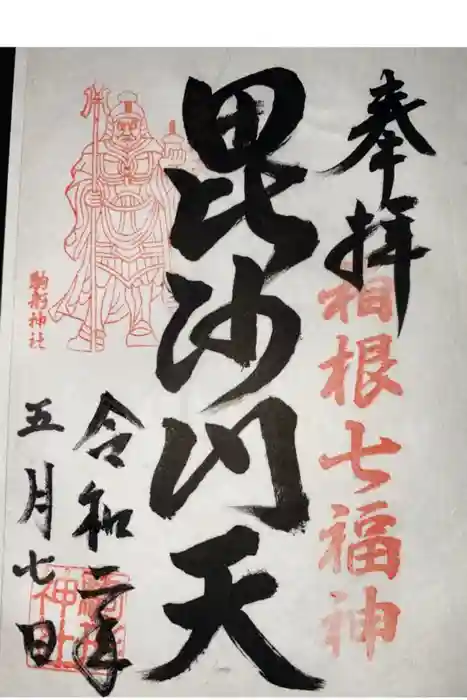 奉拝
箱根七福神
毘沙門天
駒形神社
令和二年
五月七日
駒形
神社